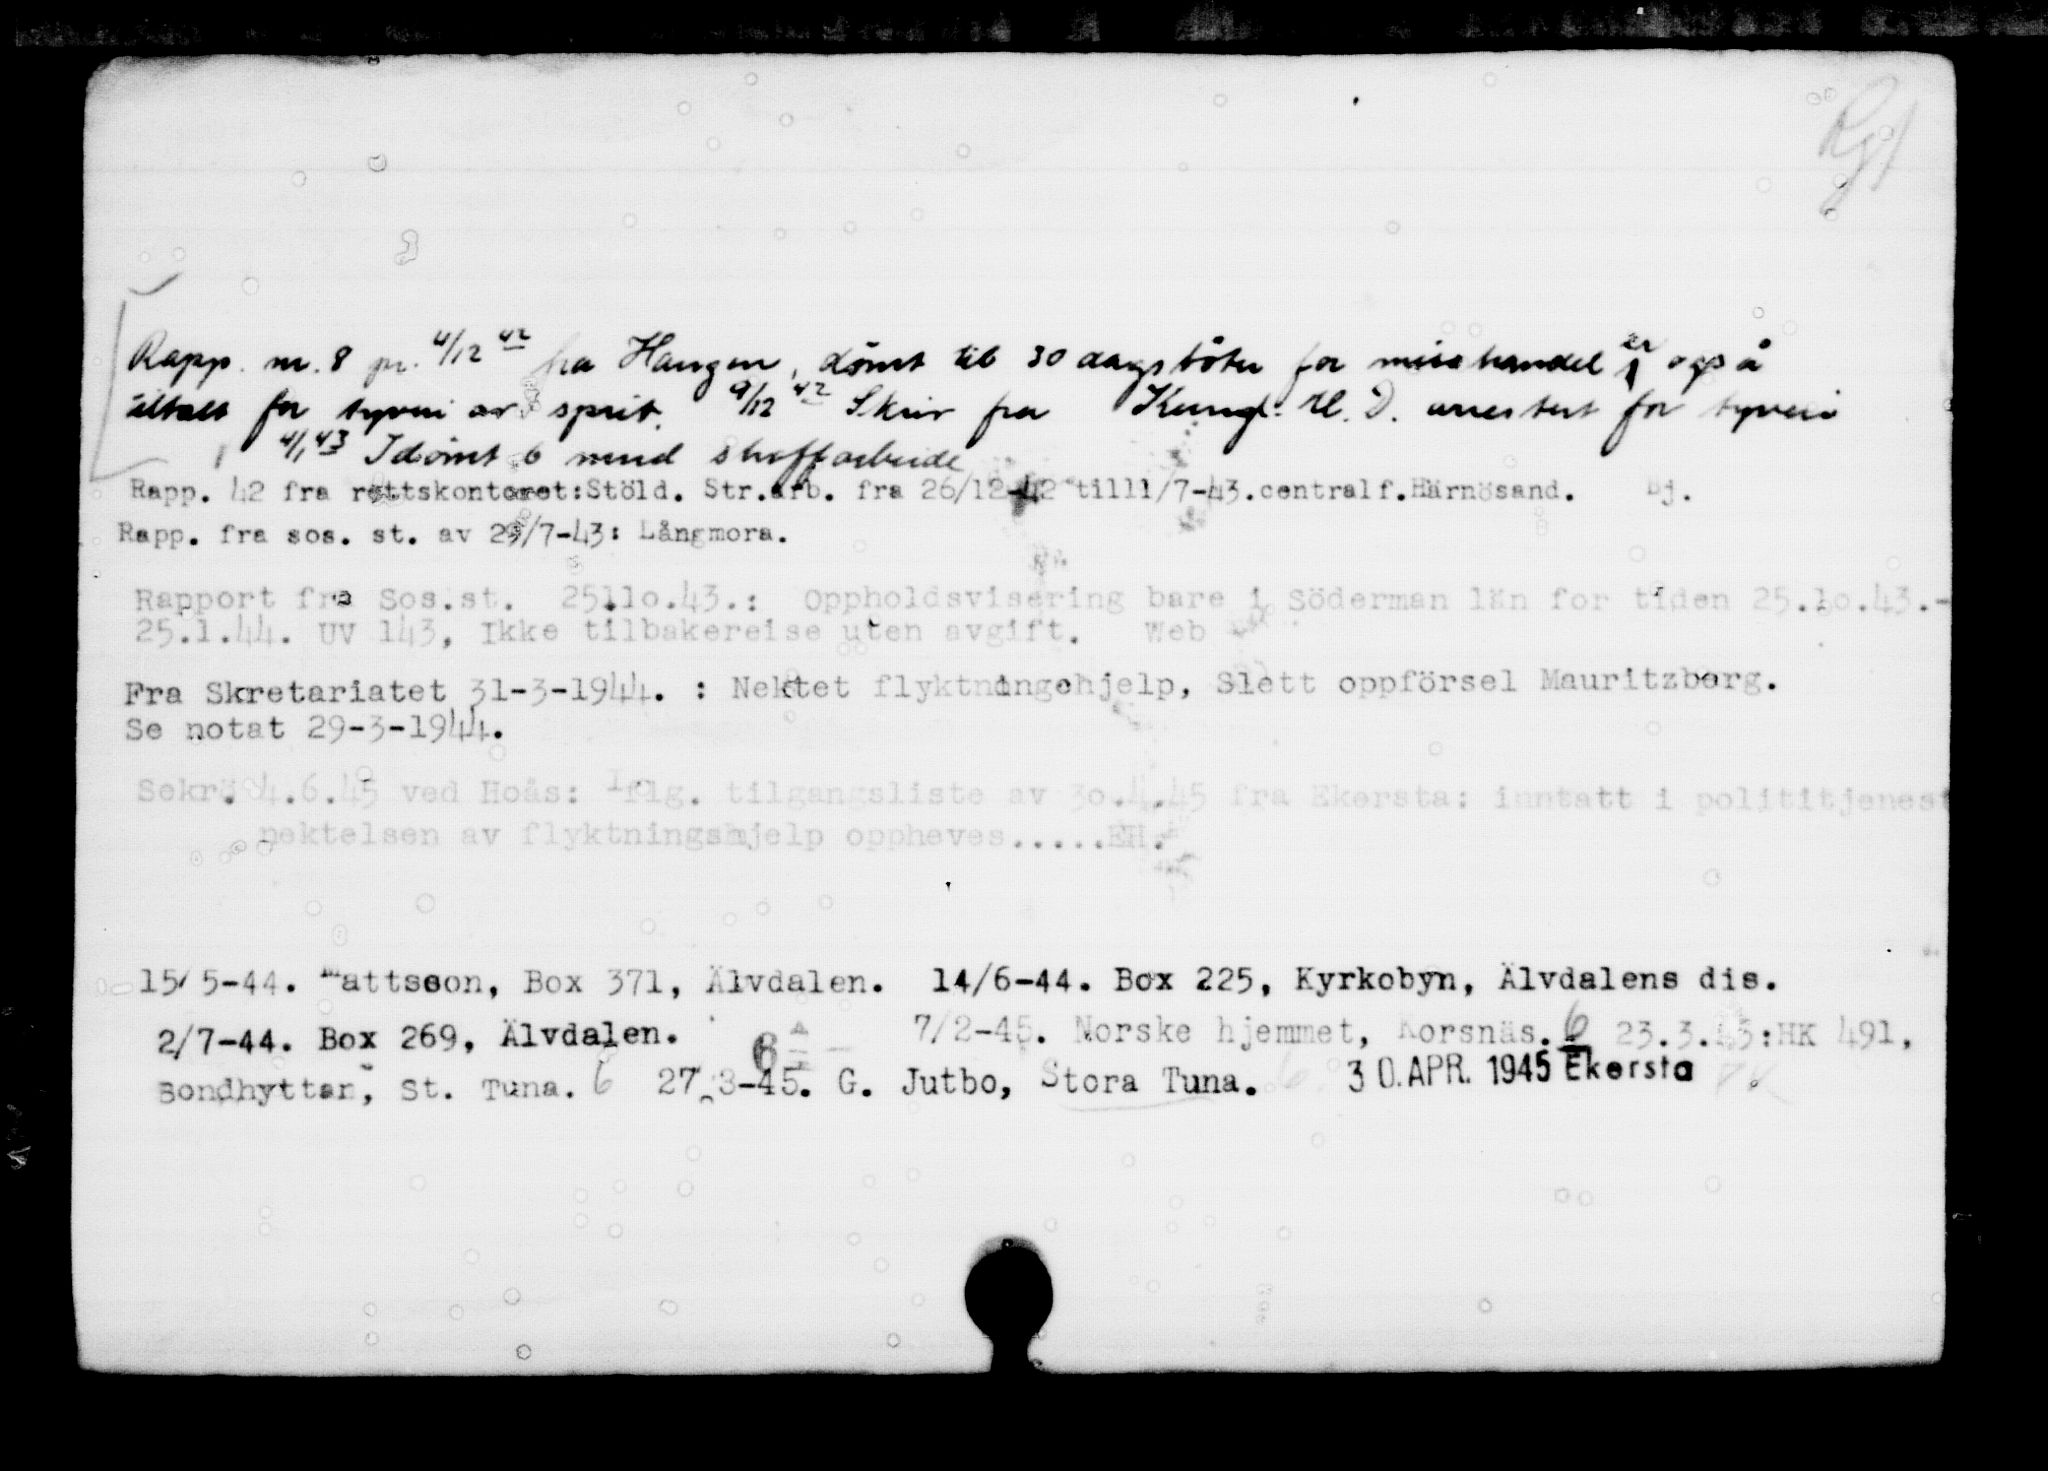 Rgt
Rapp. nr. 8 pr. 4/12 42 fra Haugen, dömt til 30 dagsböter for misshandel er også
tiltalt for tyveri av sprit. 9/12 42 Skriv fra Kungl. U. D. arrestert for tyveri
4/1 43 Idömt 6 mnd straffarbeide
Rapp. 42 fra rettskontoret:Stöld. Str.arb. fra 26/12-42 till1/7-43.centralf.Härnösand. Bj.
Rapp. fra sos. st. av 29/7-43: Långmora.
Rapport fra Sos.st. 25.10.43.: Oppholdsvisering bare i Söderman län for tiden 25.10.43.-
25.1.44. UV 143, Ikke tilbakereise uten avgift. Web
Fra Skretariatet 31-3-1944. : Nektet flyktningehjelp, Slett oppförsel Mauritzberg.
Se notat 29-3-1944.
Sekr. 4.6.45 ved Hoås: Iflg. tilgangsliste av 30.4.45 fra Ekersta: inntatt i polititjenest
nektelsen av flyktningshjelp oppheves.....EH.
15/5-44. Mattsson, Box 371, Älvdalen. 14/6-44. Box 225, Kyrkobyn, Älvdalens dis.
2/7-44. Box 269, Älvdalen. 6 7/2-45. Norske hjemmet, Korsnäs. 6 23.3.45:HK 491,
Bondhyttan, St. Tuna. 6 27 3-45. G. Jutbo, Stora Tuna. 30. APR. 1945 Ekersta